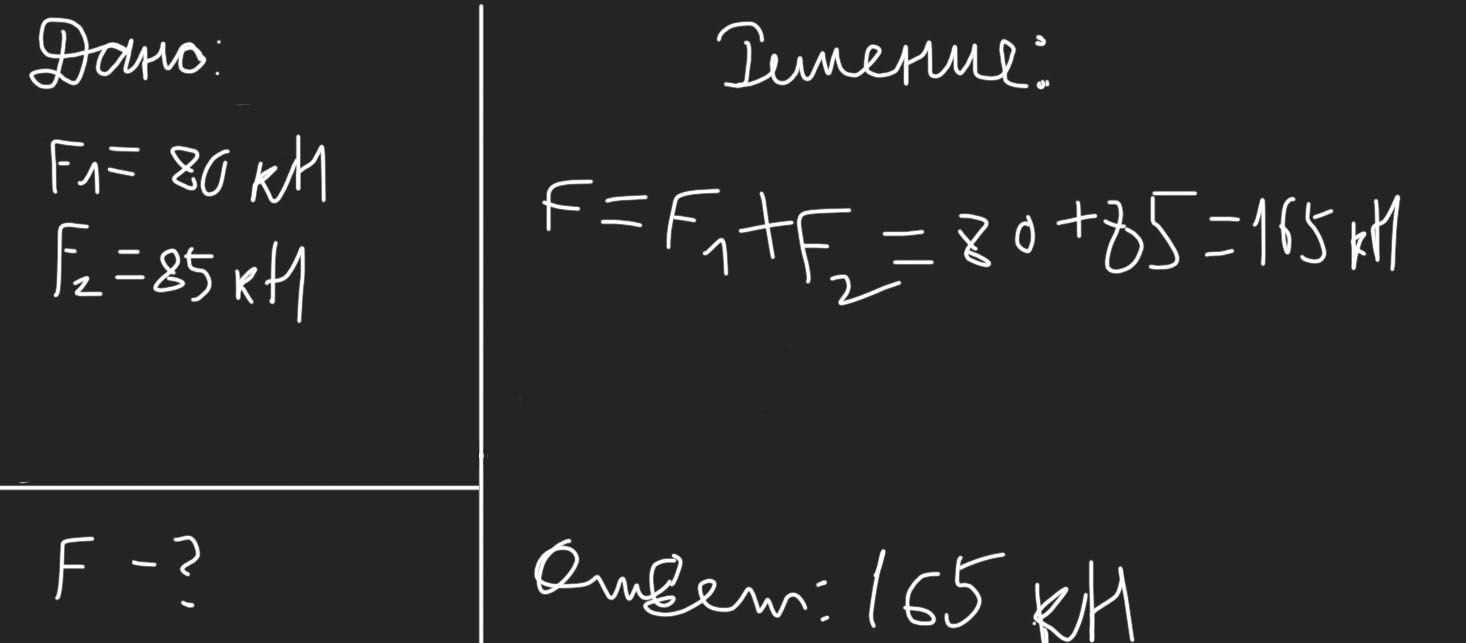 Дано:
F1 = 80 кН
F2 = 85 кН
F - ?
Решение:
F = F1 + F2 = 80 + 85 = 165 кН
Ответ: 165 кН